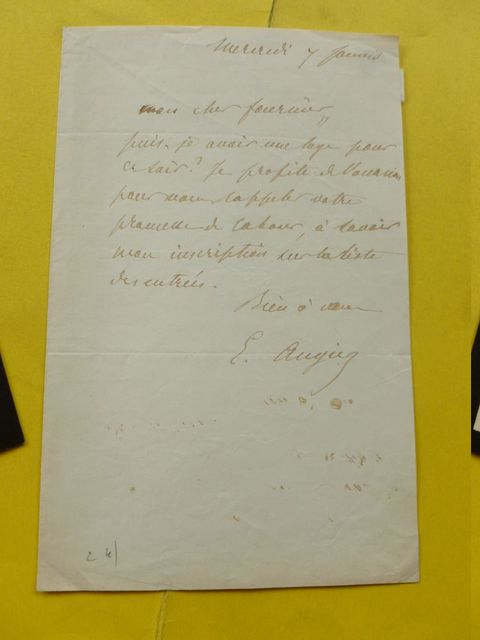 Mercredi 7 janvier
mon cher fournier,
puis-je avoir une loge pour
ce soir? Je profite de l'occasion
pour vous rappeler votre
promesse de Cabour, à savoir
mon inscription sur la liste
des entrées.
Bien à vous
E. Augier